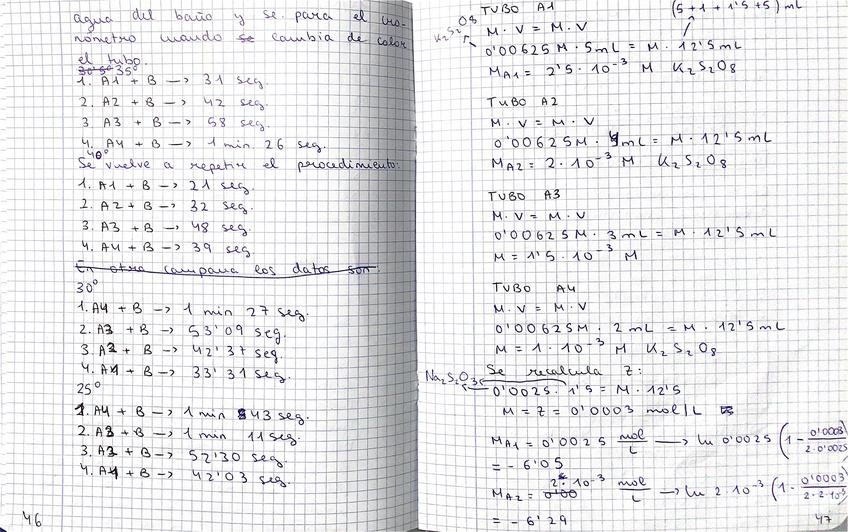 agua del baño y se para el cro-
nómetro cuando se cambia de color
el tubo.
35°
1. A1 + B —> 31 seg.
2. A2 + B —> 42 seg.
3 A3 + B —> 58 seg.
4. A4 + B —> 1 min. 26 seg.
40°
Se vuelve a repetir el procedimiento:
1. A1 + B —> 21 seg.
2. A2 + B —> 32 seg.
3. A3 + B —> 48 seg.
4. A4 + B —> 39 seg
En otra campana los datos son:
30°
1. A4 + B —> 1 min 27 seg.
2. A3 + B —> 53'09 seg.
3. A2 + B —> 42'37 seg.
4. A1 + B —> 33'31 seg.
25°
1. A4 + B —> 1 min 43 seg.
2. A3 + B —> 1 min 11 seg.
3. A2 + B —> 52'30 seg.
4. A1 + B —> 42'03 seg.
46
TUBO A1 (5 + 1 + 1'5 + 5) mL
K₂S₂O8
M. V = M. V
0'00625 M · 5mL = M · 12'5 mL
MA1 = 2'5 · 10⁻³ M K₂S₂O8
TUBO A2
M. V = M. V
0'00625 M · 4mL = M · 12'5 mL
MA2 = 2 · 10⁻³ M K₂S₂O8
TUBO A3
M. V = M. V
0'00625 M · 3 mL = M · 12'5 mL
M = 1'5 · 10⁻³ M
TUBO A4
M. V = M. V
0'00625M · 2 mL = M · 12'5 mL
M = 1 · 10⁻³ M K₂S₂O8
Se recalcula Z:
Na₂S₂O3
0'0025 · 1'5 = M · 12'5
M = Z = 0'0003 mol/L
MA1 = 0'0025 mol/L —> ln 0'0025 (1 - 0'0003/2·0'0025
= - 6'05
MA2 = 2 · 10⁻³ mol/L —> ln 2·10⁻³ (1 - 0'0003/2·2·10⁻³
= - 6'29
47